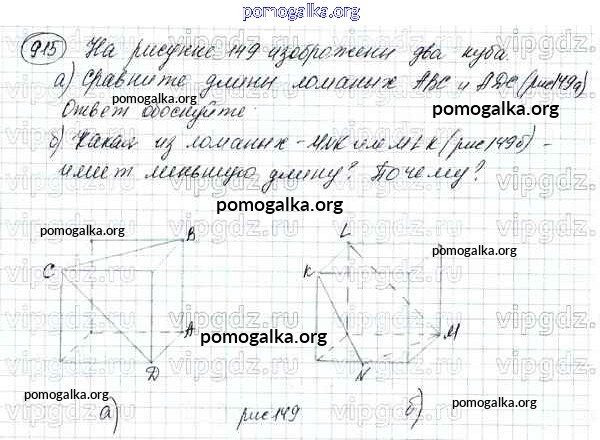 pomogalka.org
915 На рисунке 149 изображены два куба.
а) Сравните длины ломаных ABC и ADC (рис 149а)
Ответ обоснуйте.
pomogalka.org pomogalka.org
б) Какая из ломаных - MNK или MLK (рис 149б) -
имеет меньшую длину? Почему?
pomogalka.org
pomogalka.org
B L
pomogalka.org
C K
A M
pomogalka.org
D N
pomogalka.org pomogalka.org
а) рис 149 б)
pomogalka.org